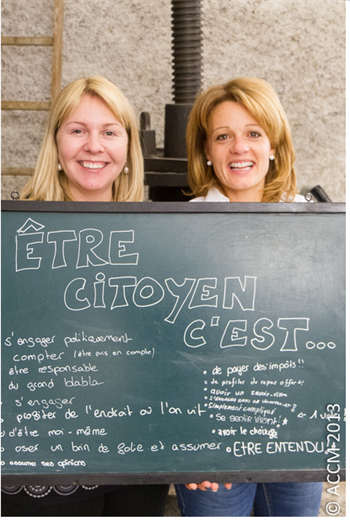 ÊTRE
CITOYEN
C'EST...
s'engager politiquement
compter (être pris en compte)
être responsable
du grand blabla
s'engager
profiter de l'endroit où l'on vit
d'être moi-même
oser un brin de folie et assumer
assumer ses opinions
• de payer des impôts!!
• de profiter du repas offert!
• avoir un savoir-vivre
• Simplement compliqué
• se sentir vivant!
• avoir le choix
• ÊTRE ENTENDU!
© ACCM 2013